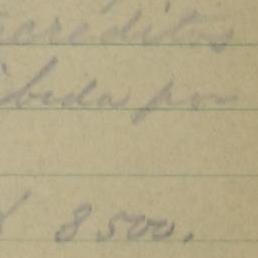 creditos
bida por
8500.